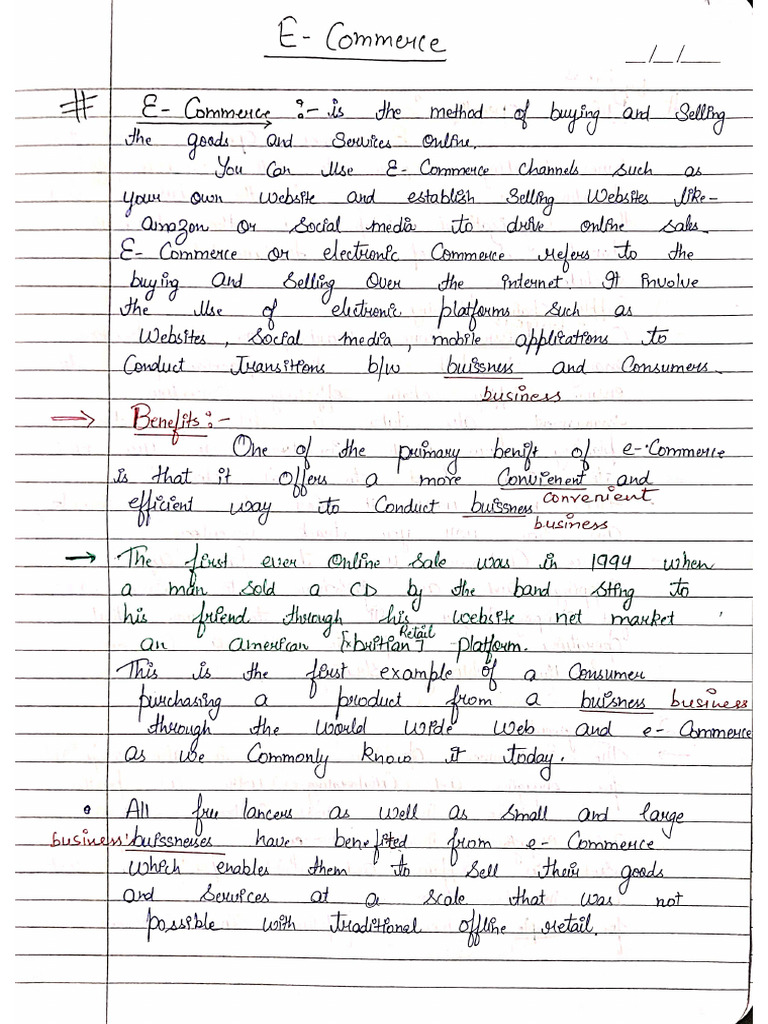 E- Commerce
_/_/__
# E- Commerce :- is the method of buying and Selling
the goods and Services Online.
You Can Use E- Commerce Channels such as
your own website and establish Selling Websites like-
amazon or social media to drive online sales.
E- Commerce or electronic Commerce refers to the
buying and selling over the internet. It involve
the use of electronic platforms such as
Websites, social media, mobile applications to
Conduct Transitions b/w buissness and Consumers.
business
→ Benefits :-
One of the primary benift of e-Commerce
is that it offers a more Convienent and
efficient way to Conduct buissness convenient
business
→ The first ever online sale was in 1994 when
a man sold a CD by the band sting to
his friend through his website net market
an american [xbritian] Retail platform.
This is the first example of a Consumer
purchasing a product from a buisness business
through the world wide web and e- Commerce
as we Commonly know it today.
• All free lancers as well as small and large
business buissnesses have benefited from e- Commerce
which enables them to sell their goods
and services at a scale that was not
possible with traditional offline retail.